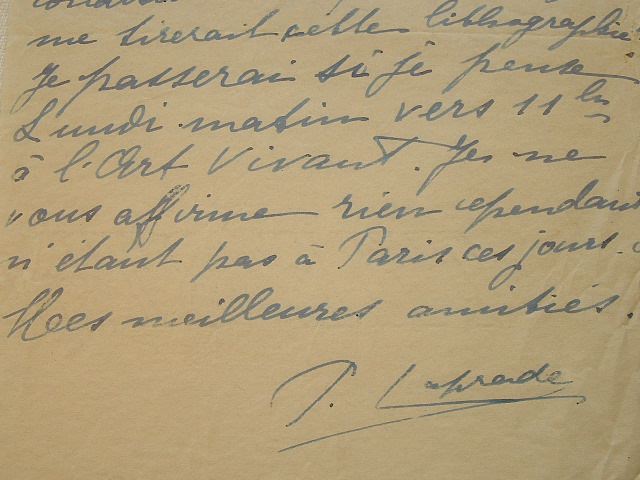 me tirerait cette lithographie.
Je passerai si je peux
Lundi matin vers 11 hs
à l'Art Vivant. Je ne
vous affirme rien cependant
n'étant pas à Paris ces jours-
Mes meilleures amitiés.
P. Laprade